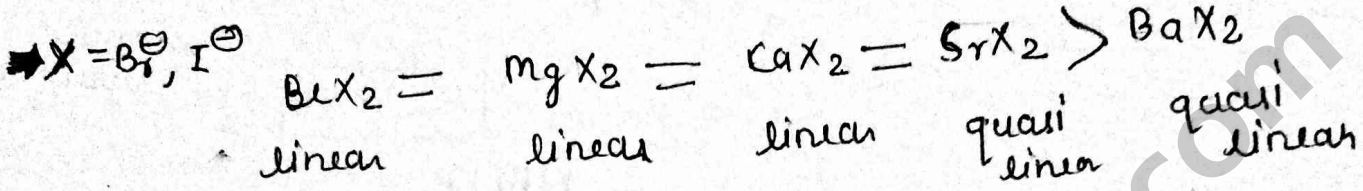 ➡X = Br⊖, I⊖ BeX2 = MgX2 = CaX2 = SrX2 > BaX2
linear linear linear quasi linear quasi linear
com